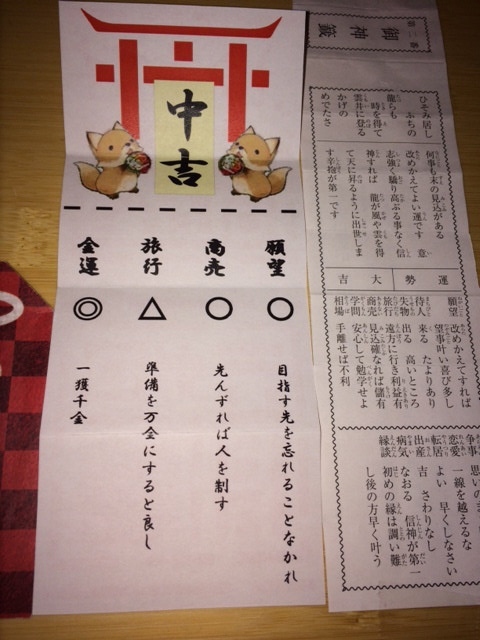 中吉
願望
○
目指す先を忘れることなかれ
商売
○
先んずれば人を制す
旅行
△
準備を万全にすると良し
金運
◎
一攫千金
第二番
御神籤
ひそみ居し
ふちの
龍らも
時を得て
雲井に登る
かげの
めでたさ
何事も末の見込がある
改めかえてよい運です 意
志強く驕り高ぶる事なく信
神すれば 龍が風や雲を得
て天に昇るように出世しま
す辛抱が第一です
運勢大吉
願望 改めかえてすれば
望事叶い喜び多し
待人 来る たよりあり
失物 出る 高いところ
旅行 遠方に行き利益有
商売 見込確なれば儲有
学問 安心して勉学せよ
相場 手離せば不利
争事
恋愛 一線を越えるな
転居 よい 早くしなさい
出産 吉 さわりなし
病気 なおる 信神が第一
縁談 初めの縁は調い難
し後の方早く叶う